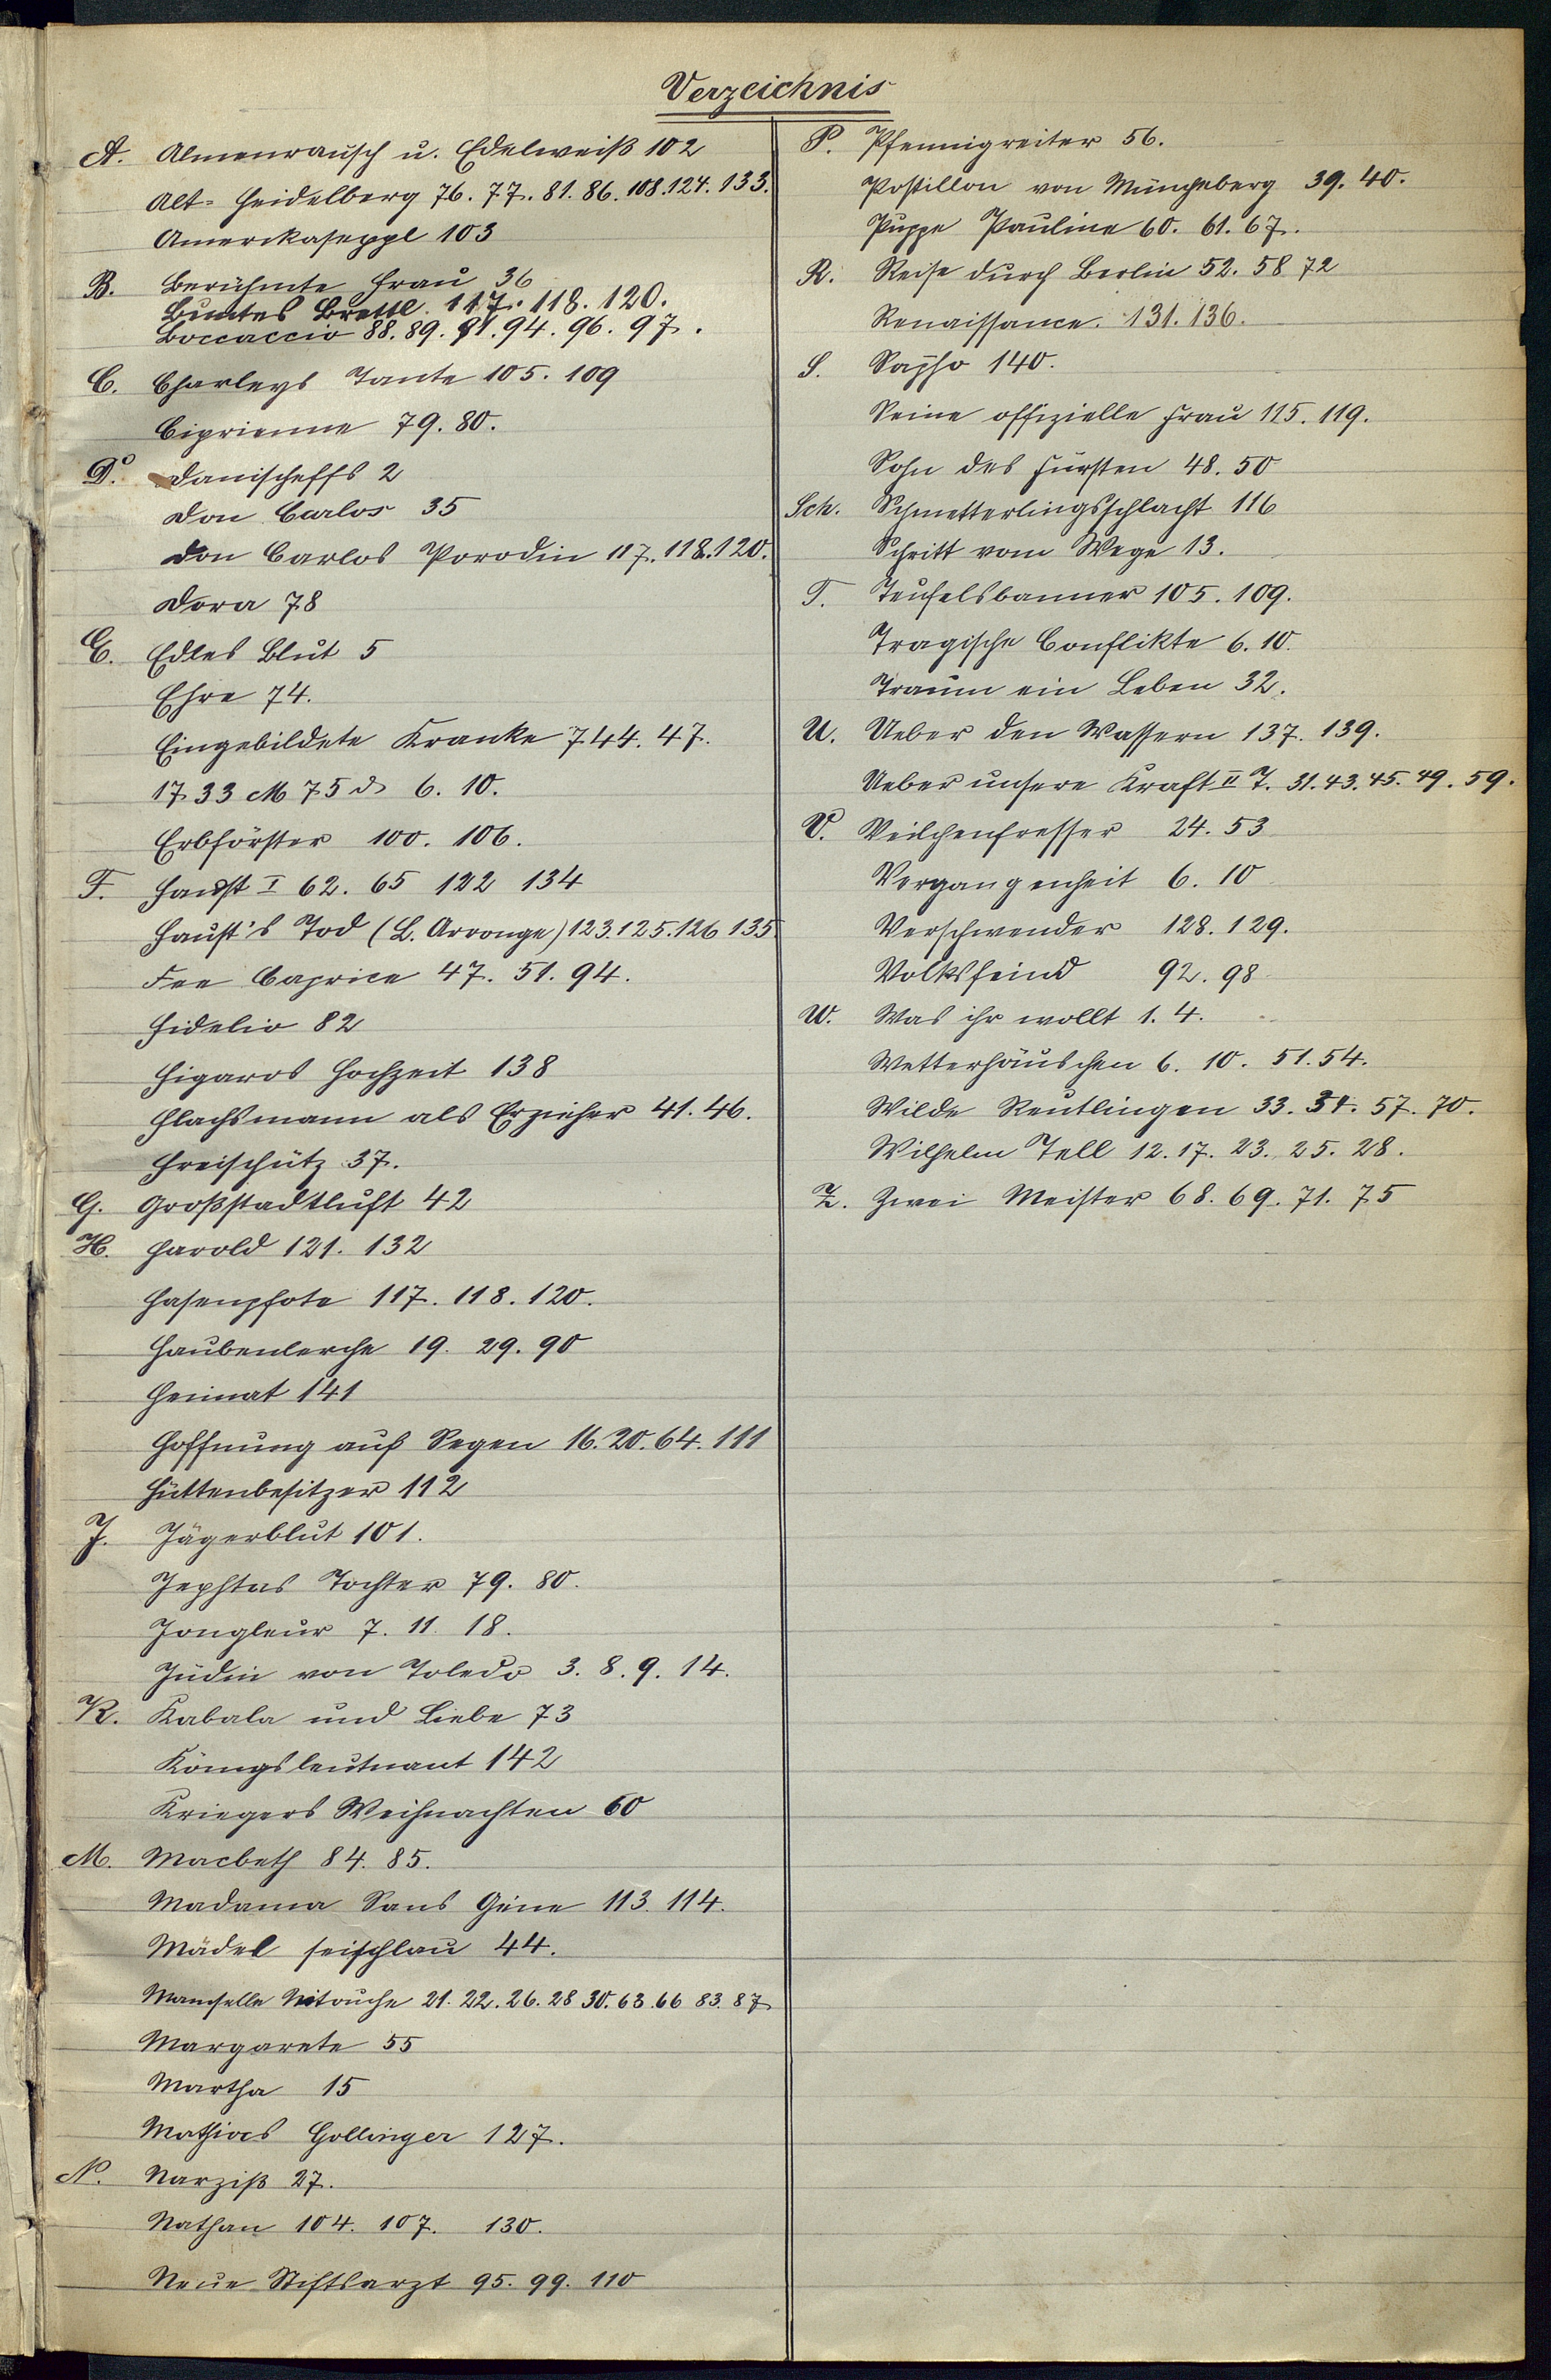 Verzeichnis
A. Almenrausch u. Edelweiß 102
Alt-Heidelberg 76. 77. 81. 86. 108. 124. 133.
Amerikaseppl 103
B. Berühmte Frau 36
Buntes Brettl 117. 118. 120.
Boccaccio 88. 89. 91. 94. 96. 97.
C. Charleys Tante 105. 109
Ciprienne 79. 80.
D. Danischeffs 2
Don Carlos 35
Don Carlos Porodin 117. 118. 120.
Dora 78
E. Edles Blut 5
Ehre 74.
Eingebildete Kranke 7 44. 47.
1733 M 75 d 6. 10.
Erbförster 100. 106.
F. Faust I 62. 65 122 134
Faust's Tod (L. Arronge) 123. 125. 126 135
Fee Caprice 47. 51. 94.
Fidelio 82
Figaros Hochzeit 138
Flachsmann als Erzieher 41. 46.
Freischütz 37.
G. Großstadtluft 42
H. Harold 121. 132
Hasenpfote 117. 118. 120.
Haubenlerche 19. 29. 90
Heimat 141
Hoffnung auf Segen 16. 20. 64. 111
Hüttenbesitzer 112
J. Jägerblut 101.
Jephtas Tochter 79. 80.
Jongleur 7. 11. 18.
Jüdin von Toledo 3. 8. 9. 14.
K. Kabala und Liebe 73
Königsleutnant 142
Kriegers Weihnachten 60
M. Macbeth 84. 85.
Madama Sans Gêne 113. 114.
Mädel seischlau 44.
Mamselle Nitouche 21. 22. 26. 28 30. 63. 66 83. 87
Margarete 55
Martha 15
Mathias Gollinger 127.
N. Narziß 27.
Nathan 104. 107. 130.
Neue Stiftsarzt 95. 99. 110
P. Pfennigreiter 56.
Postillon von Müncheberg 39. 40.
Puppe Pauline 60. 61. 67.
R. Reise durch Berlin 52. 58 72
Renaissance. 131. 136.
S. Sapho 140.
Seine offizielle Frau 115. 119.
Sohn des Fürsten 48. 50
Sch. Schmetterlingsschlacht 116
Schritt vom Wege 13.
T. Teufelsbanner 105. 109.
Tragische Conflikte 6. 10.
Traum ein Leben 32.
U. Ueber den Wassern 137. 139.
Ueber unsere Kraft II T. 31. 43. 45. 49. 59.
V. Veilchenfresser 24. 53
Vergangenheit 6. 10
Verschwender 128. 129.
Volksfeind 92. 98
W. Was ihr wollt 1. 4.
Wetterhäuschen 6. 10. 51. 54.
Wilde Reutlingen 33. 34. 57. 70.
Wilhelm Tell 12. 17. 23. 25. 28.
Z. Zwei Meister 68. 69. 71. 75